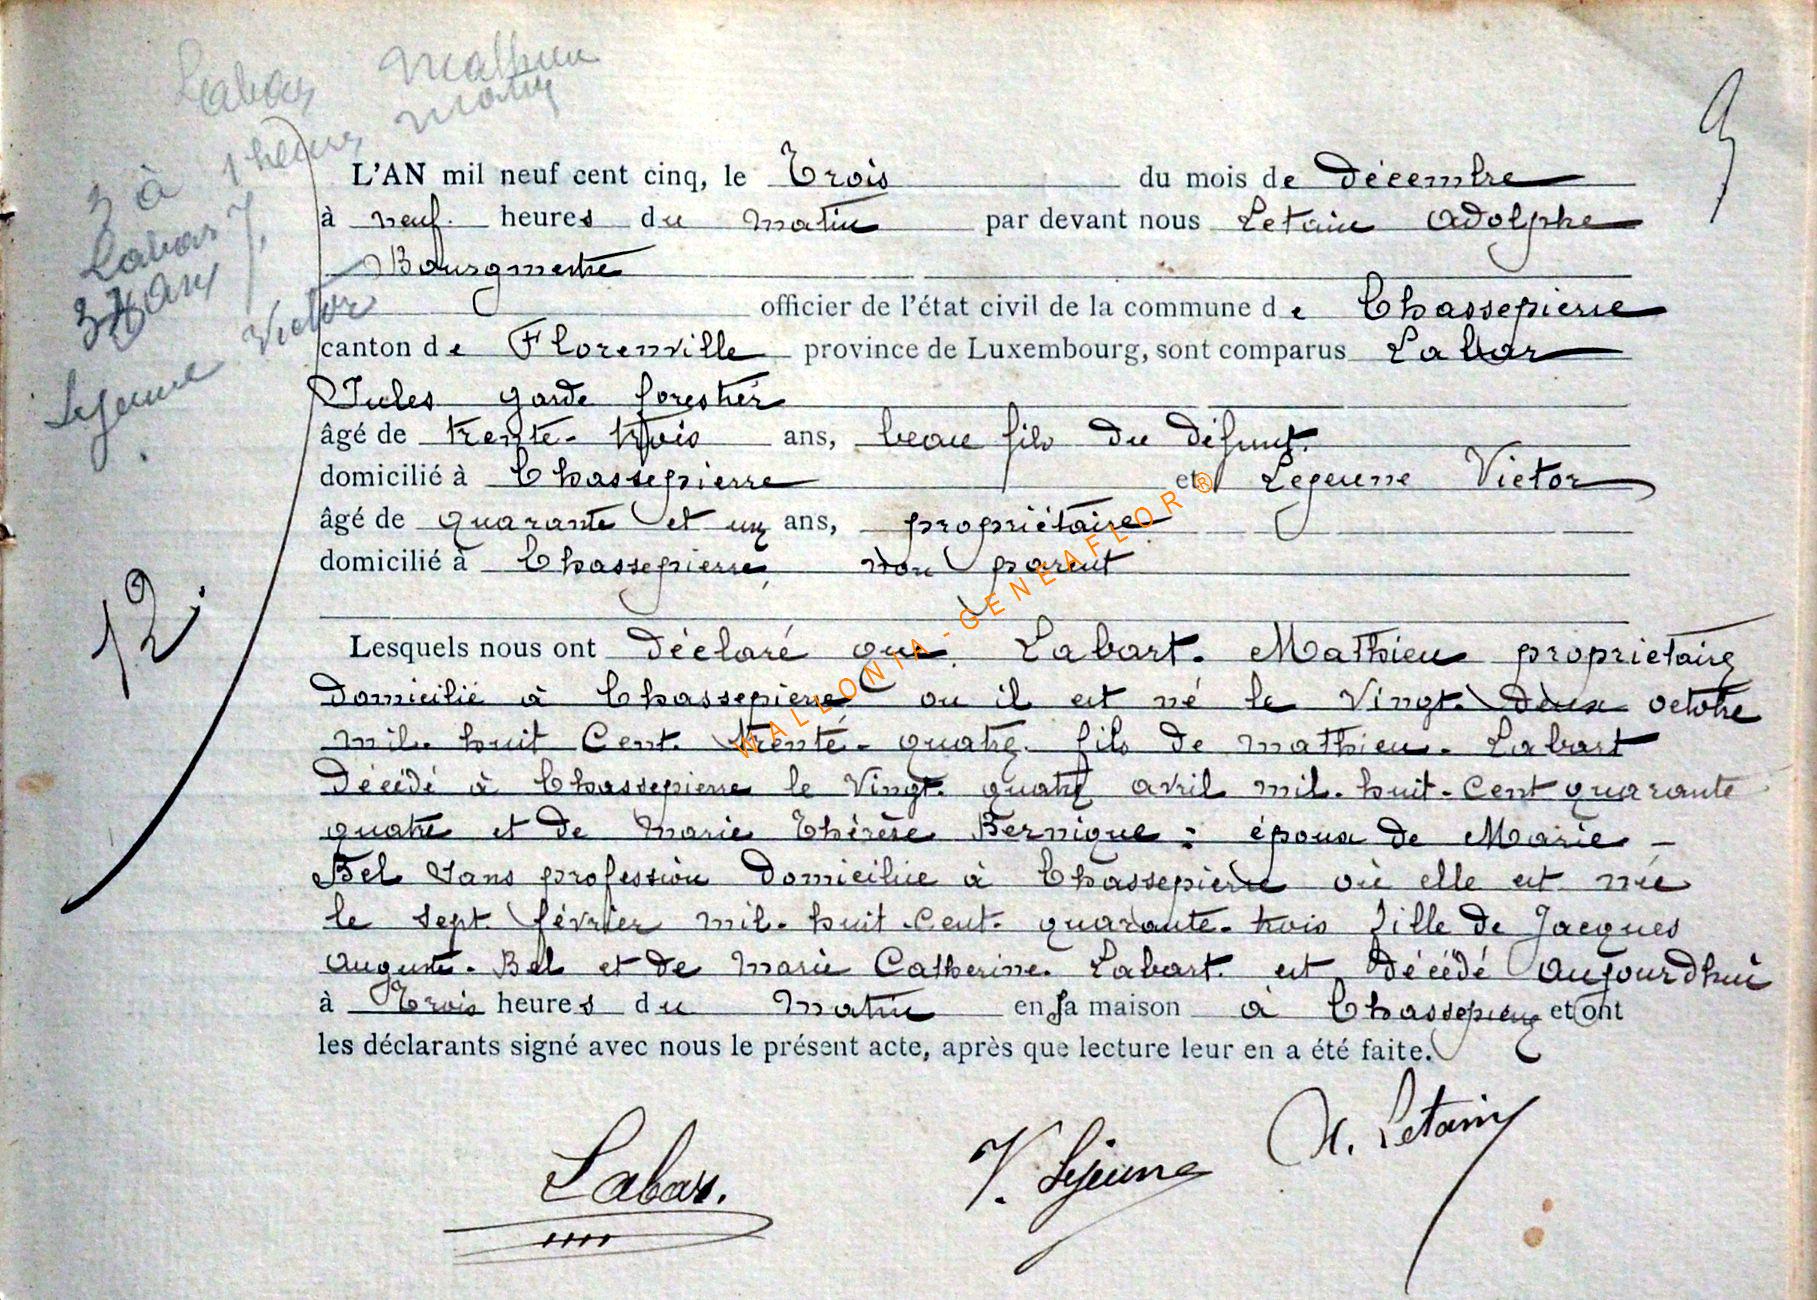 Labar Mathieu
3 à 1 heure matin
Labar J,
33 ans
Lejeune Victor
9
12.
L'AN mil neuf cent cinq, le Trois du mois de décembre
à neuf heures du matin par devant nous Letain Adolphe
Bourgmestre
officier de l'état civil de la commune de Chassepierre
canton de Florenville province de Luxembourg, sont comparus Labar
Jules garde forestier
âgé de trente-trois ans, beau fils du défunt.
domicilié à Chassepierre et Lejeune Victor
âgé de quarante et un ans, propriétaire
domicilié à Chassepierre, non parent
Lesquels nous ont déclaré que Labart. Mathieu propriétaire
domicilié à Chassepierre ou il est né le vingt-deux octobre
mil-huit cent trente-quatre fils de Mathieu-Labart
décédé à Chassepierre le vingt-quatre avril mil-huit-cent quarante
quatre et de Marie Thérèse Bernique : époux de Marie -
Bel sans profession domiciliée à Chassepierre où elle est née
le sept février mil-huit-cent-quarante-trois fille de Jacques
Auguste-Bel et de Marie Catherine Labart est décédé aujourdhui
à Trois heures du matin en sa maison à Chassepierre et ont
les déclarants signé avec nous le présent acte, après que lecture leur en a été faite.
Labar. V. Lejeune A. Letain
WALLONIA-GENEAFLOR®